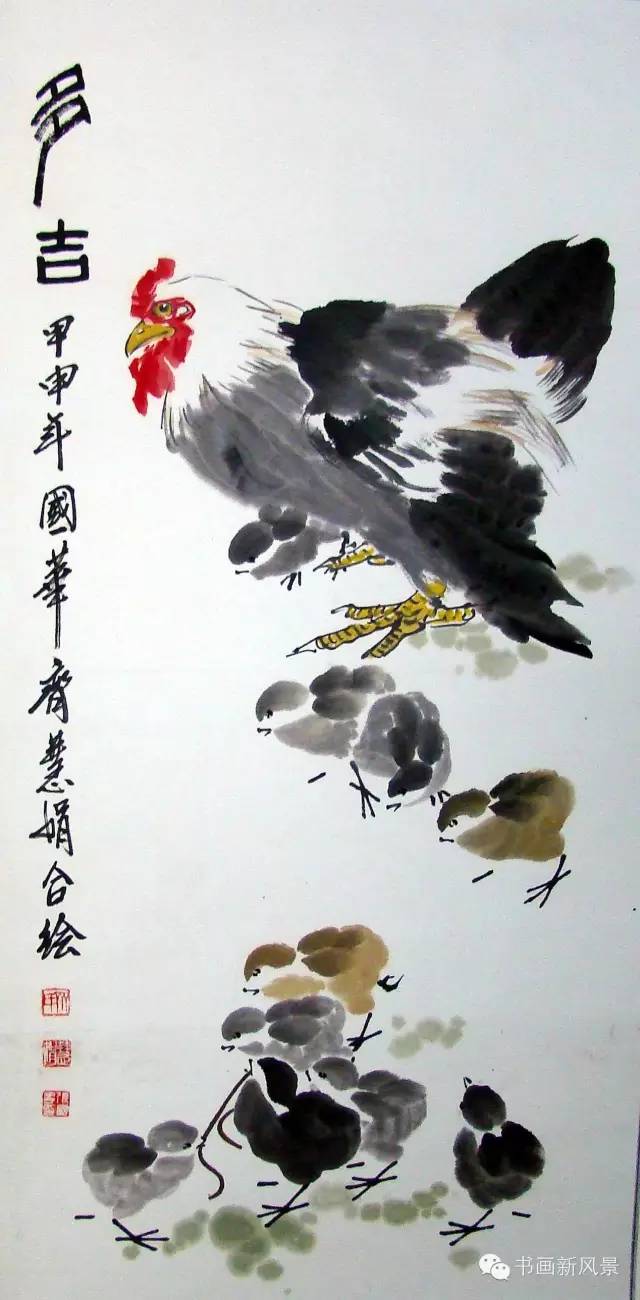 多吉
甲申年國華齊慧娟合绘
书画新风景